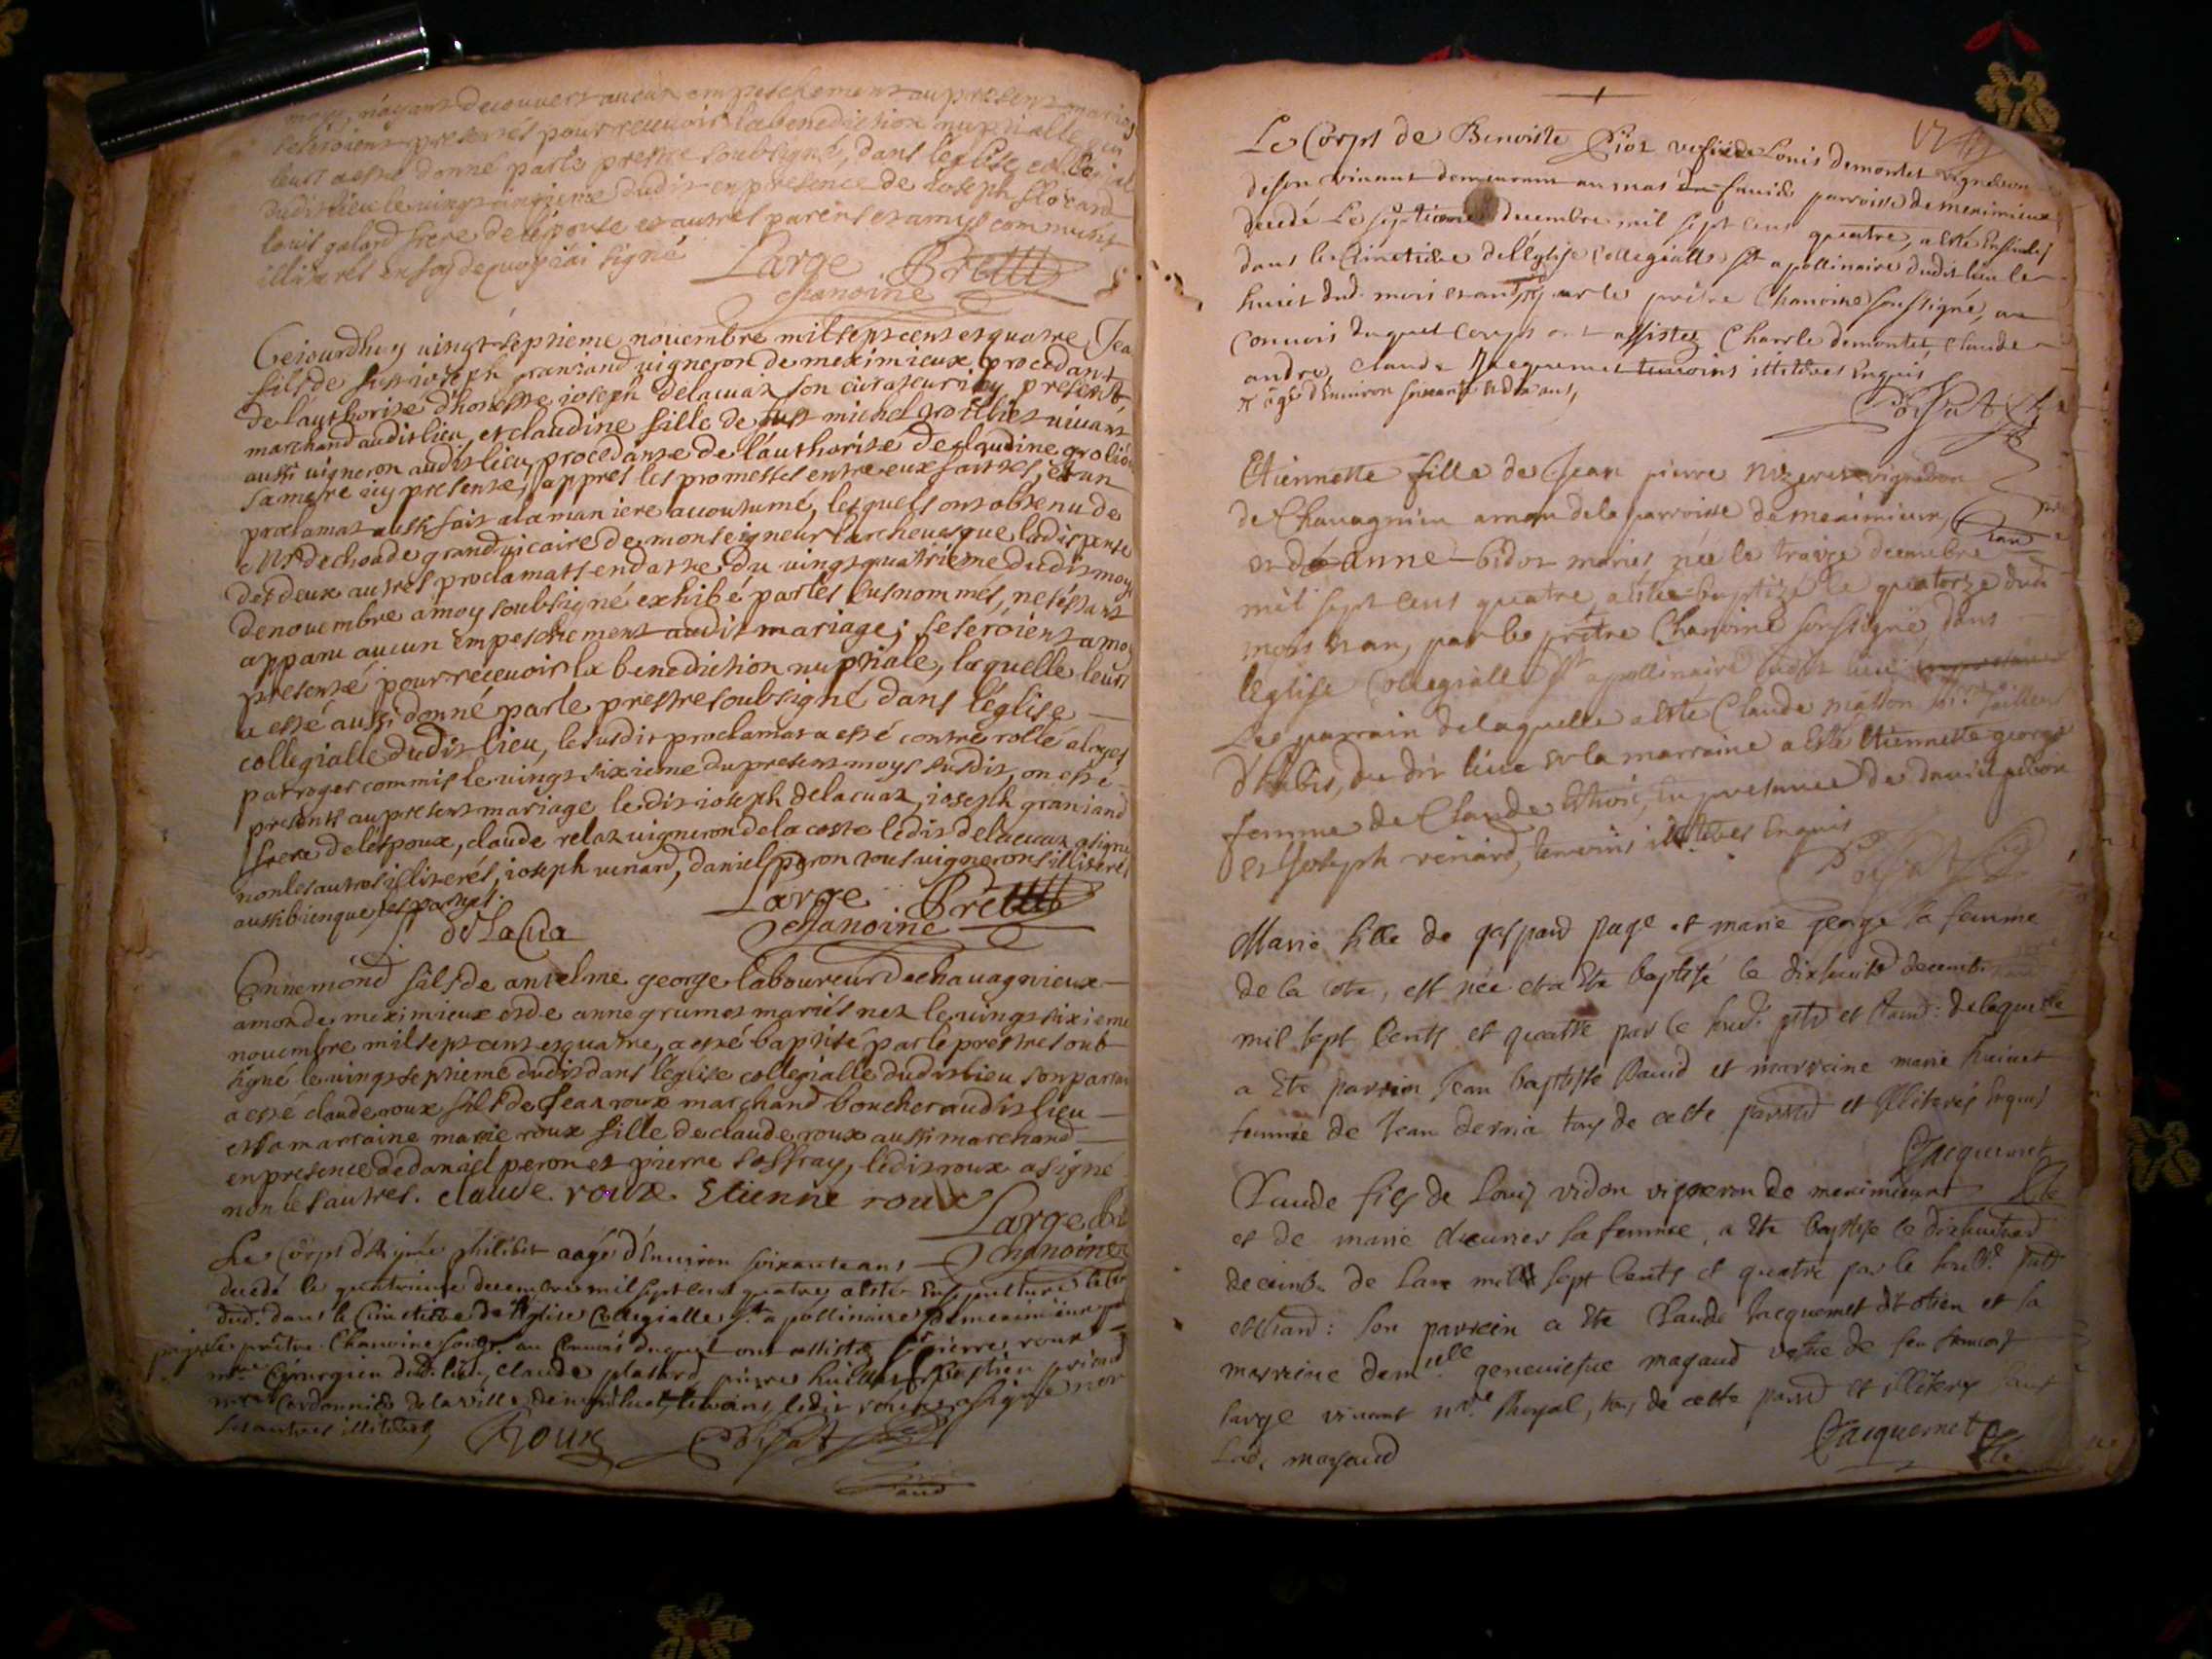 moy, n'ayant decouvert aucun empeschement au present mariage
se seroient presentés pour recevoir la benediction nuptialle qui
leurs a esté donné par le prestre soubsigné, dans l'eglise collegial
dudit lieu le vingt cinqieme dudit en presence de ioseph
louis galand frere de l'épouse et autres parens et amys communs
illiterés en foy de quoy i'ai signé Large Prêtre
chanoine
Ceiourdhuy vingt septieme novembre mil sept cent et quatre Jea
fils de fust ioseph graniand vigneron de meximieux procedant
de l'authorise d'honeste ioseph delacuaz son curateur icy present,
marchand audit lieu, et claudine fille de fust michel vivant
aussi vigneron audit lieu, procedante de l'authorité de claudine
sa mere icy presente, appres les promesses entre eux faittes, et un
proclamat aussi fait a la maniere accoutumé, lesquels ont obtenu de
Mr dechoade grand vicaire de monseigneur l'archevesque la dispense
des deux autres proclamats en datte du vingt quatrieme dudit moys
de novembre a moy soubsigné exhibé par les susnommés, ne s'éstant
apparu aucun empeschement audit mariage; se seroient a moy
presenté pour recevoir la benediction nuptiale, laquelle leurs
a esté aussi donné par le prestre soubsigné dans l'église
collegialle dudit lieu, le susdit proclamat a esté controrollé
par roger commis le vingt sixieme du present moys susdit, on esté
presents au present mariage ledit ioseph delacuaz, ioseph graniand
frere de l'espoux, claude relaz vigneron de la coste ledit delacuaz a signé
non les autres illiterés, ioseph venard, daniel peron tous vignerons illiterés
aussi bien que les partyes.
Large Prêtre
chanoine
de Lacua
Ennemond fils de antelme george laboureur de chavagnieux
amon de meximieux et de anne grumet mariés nez le vingt sixieme
novembre mil sept cent et quatre, a esté baptisé par le prestre soub
signé le vingt septieme dudit dans l'église collegialle dudit lieu son parrain
a esté claude roux fils de Jean roux marchand boucher audit lieu
et sa marraine marie roux fille de claude roux aussi marchand
en presence de daniel peron et pierre soffray, ledit roux a signé
non les autres. claude roux Etienne roux
Large
chanoine
Le Corps philibert aagé d'Environ soixante ans
decedé le quatrieme decembre mil sept cent quatre a esté Ensepulturé
dud. dans le Cimetiere de l'Eglise Collegialle St apollinaire de meximieux
par le prêtre Chanoine au Convois duquel ont assisté pierre roux
mre Cirurgien dud. lieu, claude platard, pierre
mre Cordonnier de la ville temoins ledit roux a signé non
les autres illiteres Roux
Le Corps de Benoiste Piot vefve de Louis demontet vigneron
de son vivant demeurant au mas parroisse de meximieux
decedé Le septieme decembre mil sept cens quatre, a esté
dans le Cimetiere de l'Eglise Collegialle St apollinaire dudit lieu le
huict dud. mois et an par le prêtre Chanoine soussigné, au
Convois duquel corps ont assistez Charle demontet, claude
andre, claude Jacquemet temoins illiteres Enquis
x agé d'Environ soixante ans,
Etiennette fille de Jean pierre vigneron
de Chavagnieu amon de la parroisse de meximieux,
et de anne bidot mariés, née le traize decembre
mil sept cens quatre, a esté baptizé le quatorze dud
mois et an, par le prêtre Chanoine soussigné, dans
l'Eglise Collegialle St apollinaire dudit lieu
Les parrain de laquelle a esté Claude masson tailleur
d'habis, dudit lieu et la marraine a esté Etiennette george
femme de Claude en presence de daniel peron
et Joseph venard, temoins illiteres Enquis
Marie fille de gaspard page et marie george sa femme
de la cote, est née et a Ete baptisé le dixhuit decemb.
mil sept Cents et quatre par le soud. ptre et chand: de laquelle
a Ete parrein Jean baptiste David et marreine marie
femme de Jean dernia tous de cette parr. et illiterés Enquis
Jacquemet
Claude fils de Louis vidon vigneron de meximieux
et de marie sa femme, a Ete baptise le dixhuit
decemb. de Lan mil sept Cents et quatre par le
et chand: Son parrein a Ete Claude Jacquemet dit otien et sa
marreine demlle geneuiefue magaud vefue de feu
large vivant Royal, tous de cette parr. et illiterés sauf
Lad. magaud
Jacquemet